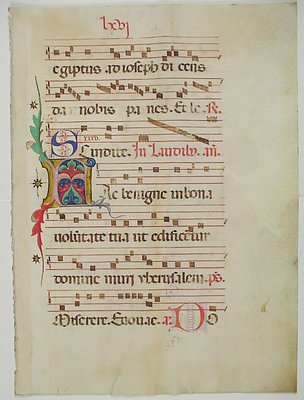 lxvj
egiptus ad ioseph dicens
da nobis panes. Et le R.
Scindite. In Laudib. an.
Fac benigne in bona
volūtate tua ut edificetur
domine muri yherusalem. ps.
Miserere. Euouae. a. Do